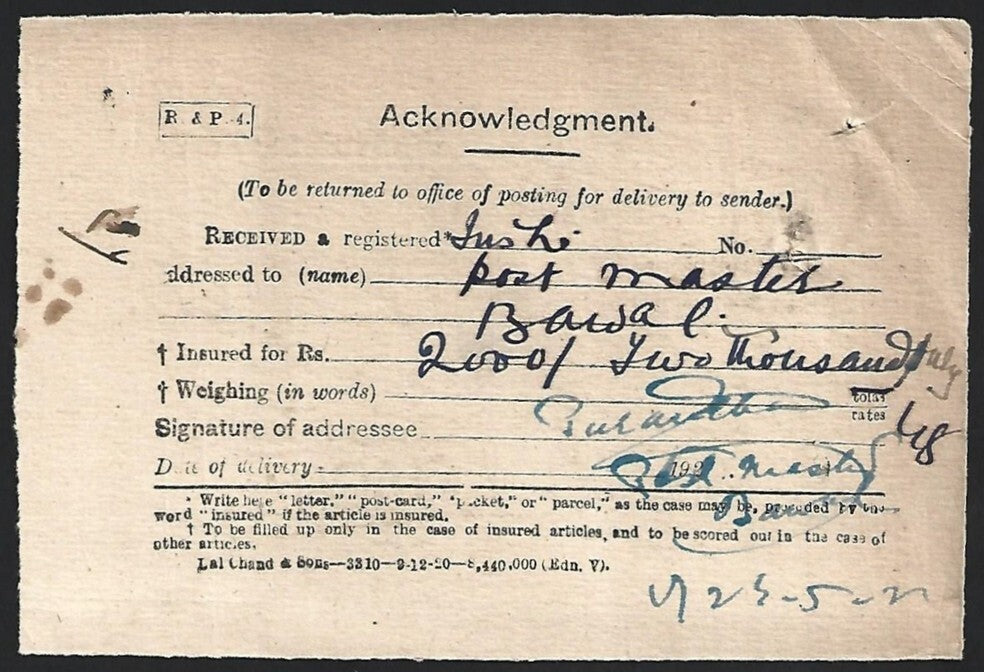 R. & P.-4.
Acknowledgment.
(To be returned to office of posting for delivery to sender.)
RECEIVED a registered* No.
ddressed to (name) Post Master
Bawal.
† Insured for Rs. 2000/ Two thousand only
† Weighing (in words) tolas
rates
Signature of addressee
Date of delivery 192 . Post Master
Bawal
* Write here "letter," "post-card," "packet," or "parcel," as the case may be, preceded by the
word "insured" if the article is insured.
† To be filled up only in the case of insured articles, and to be scored out in the case of
other articles.
Lal Chand & Sons—3310—9-12-20—8,440,000 (Edn. V).
23-5-21